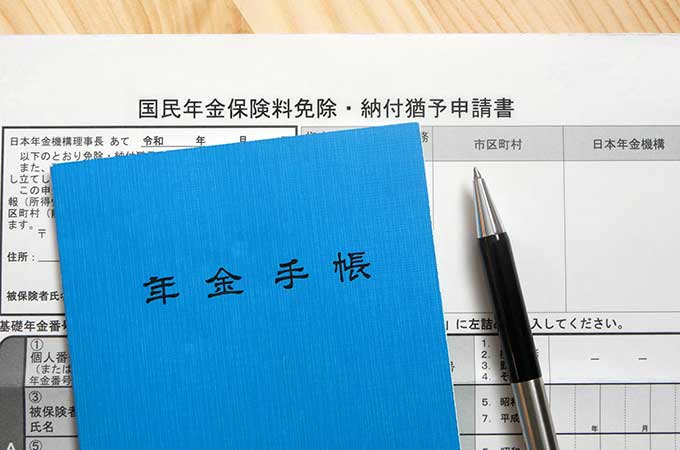 国民年金保険料免除・納付猶予申請書
日本年金機構理事長 あて 令和 年 月
務
市区町村
日本年金機構
以下のとおり免除・納付猶
また、
し立てし
この申
報（所得
区町村（
ます。
〒
住所：
被保険者氏名
年金手帳
基礎年金番号
」に左詰
入してください。
①
個人番
（または
年金番号
1.
2.
3.
4. そ
③
被保険者
氏名
5. 昭和
7. 平成
年
月
⑤
A